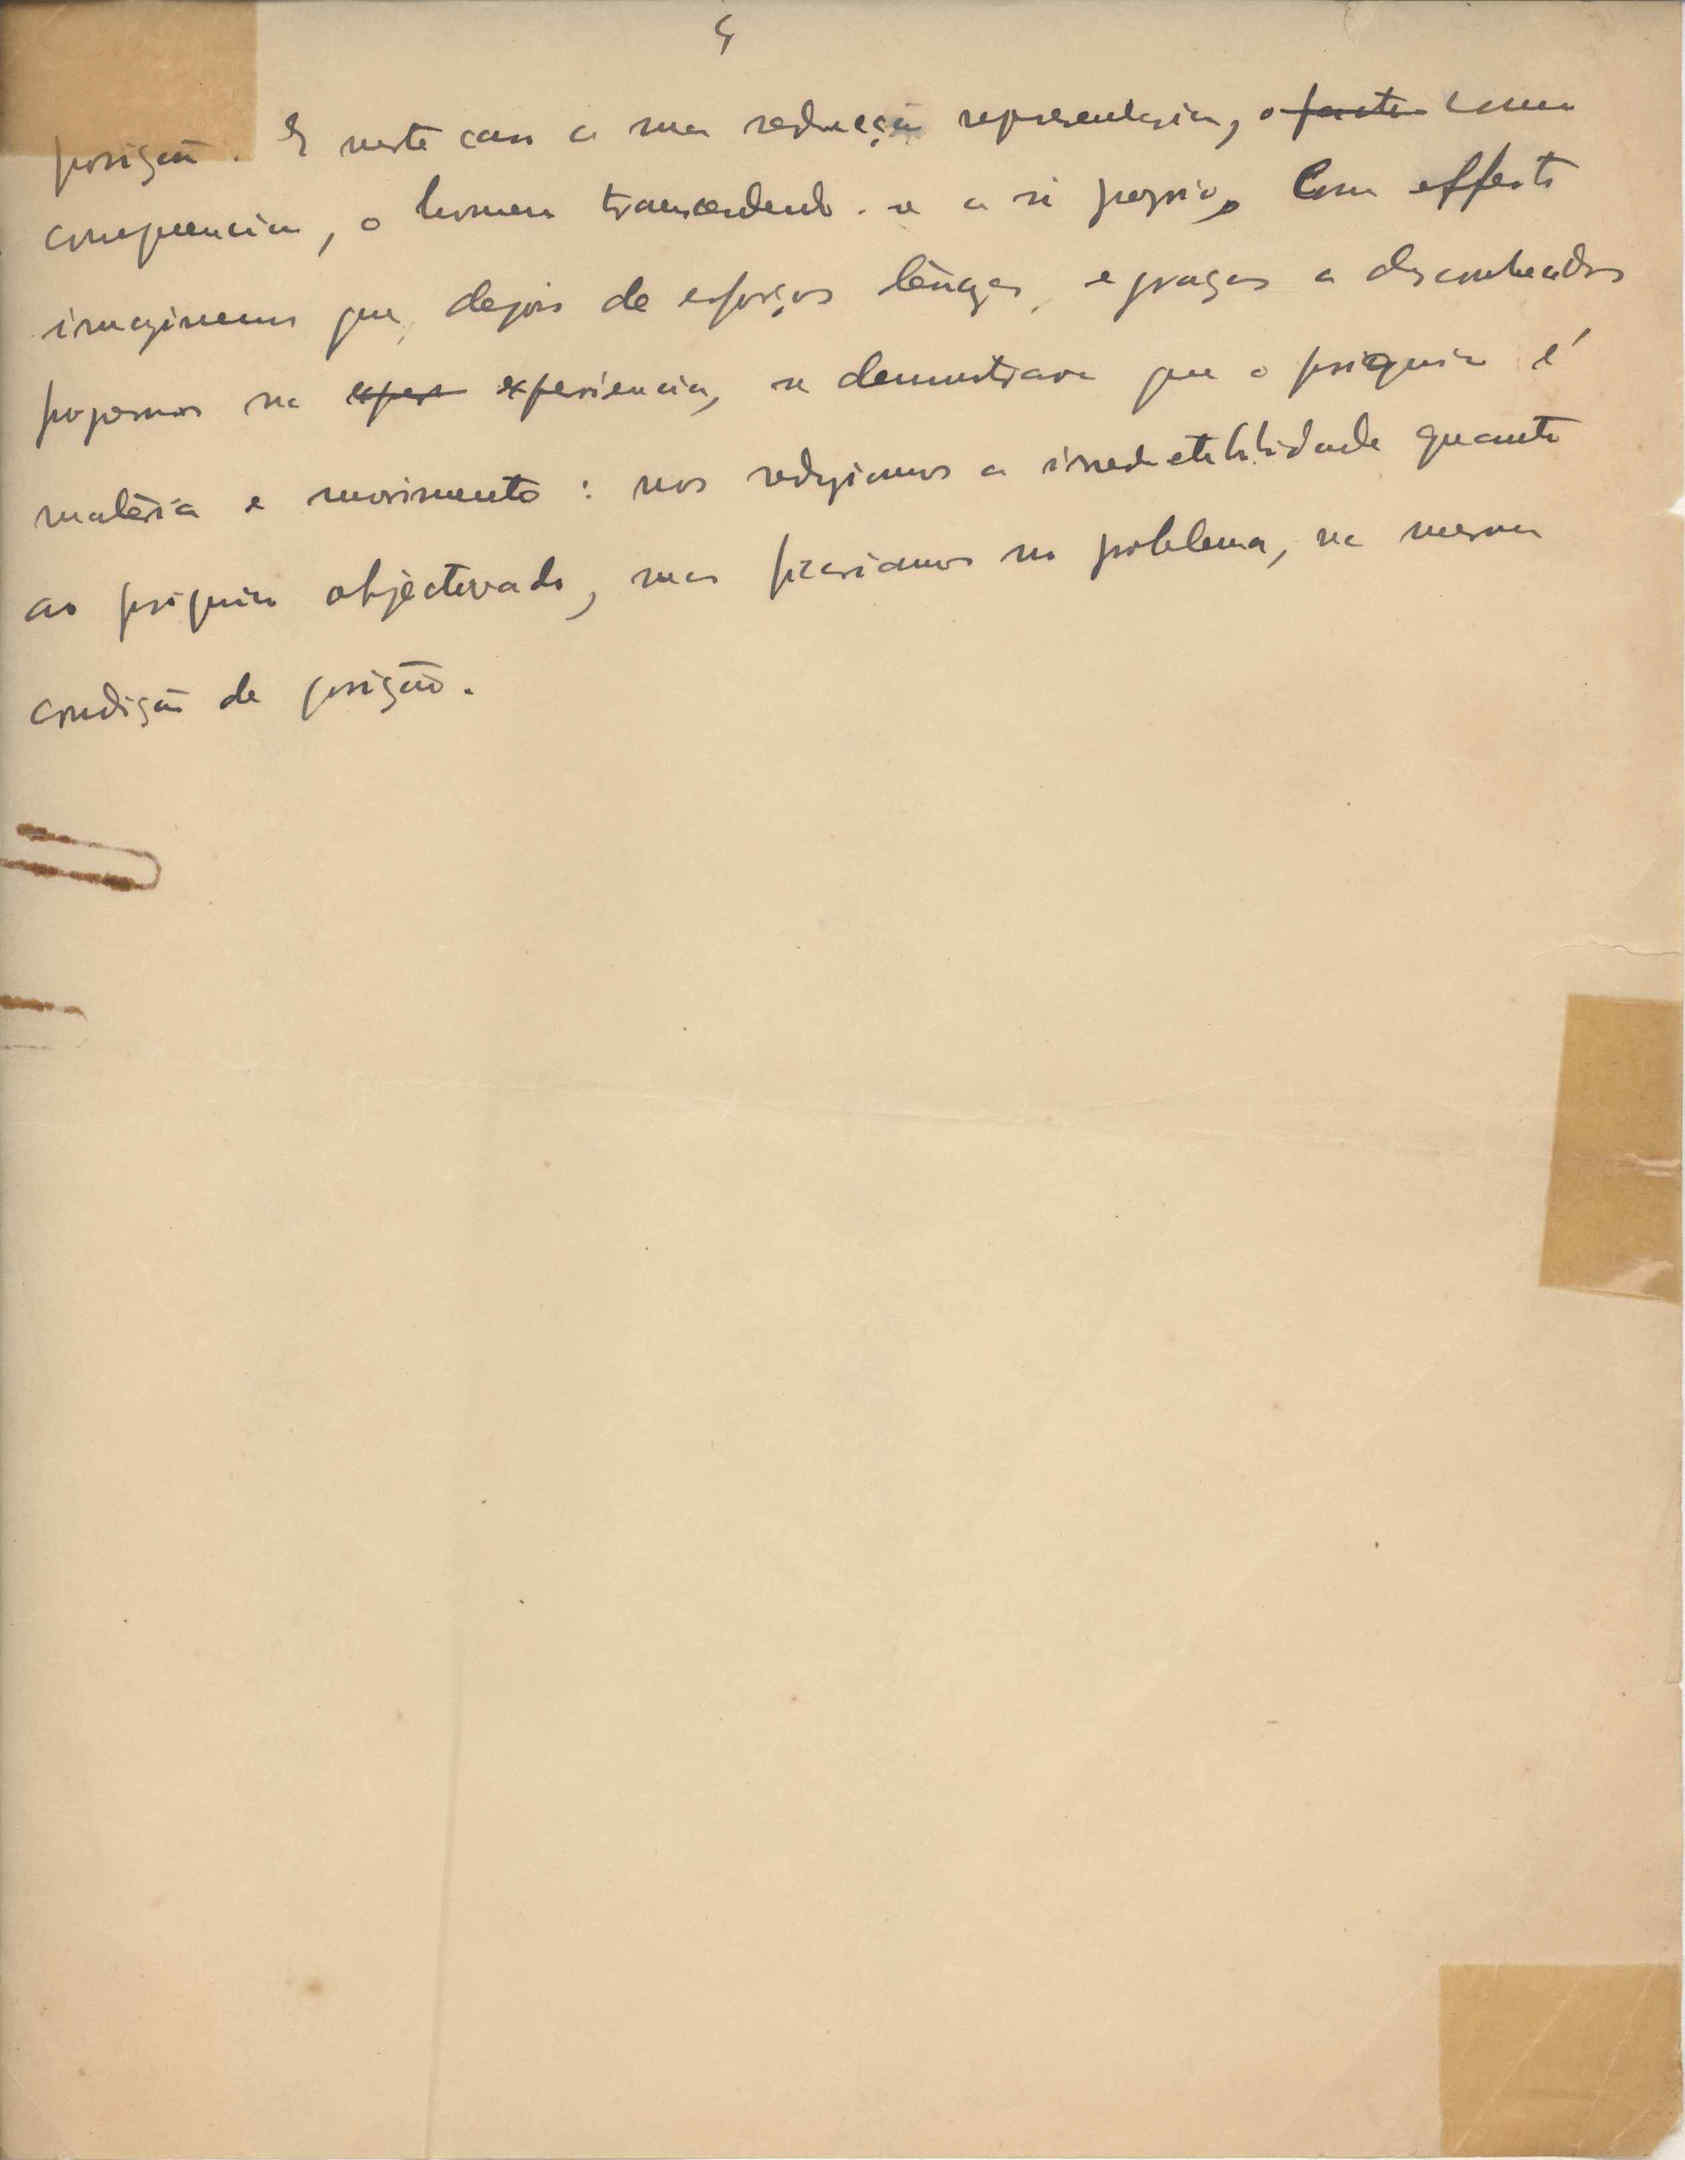 posição. E neste caso a sua reducção representaria, o facto como
consequencia, o homem transcendendo-se a si proprio. Com effeito
imaginemos que, depois de esforços tenazes, e graças a desconhecidos
progressos na exper experiencia, se demonstrava que o psiquico é
matéria e movimento: nos redusiamos a irreductibilidade quanto
ao psiquico objectivado, mas ficariamos no problema, na mesma
condição de posição.